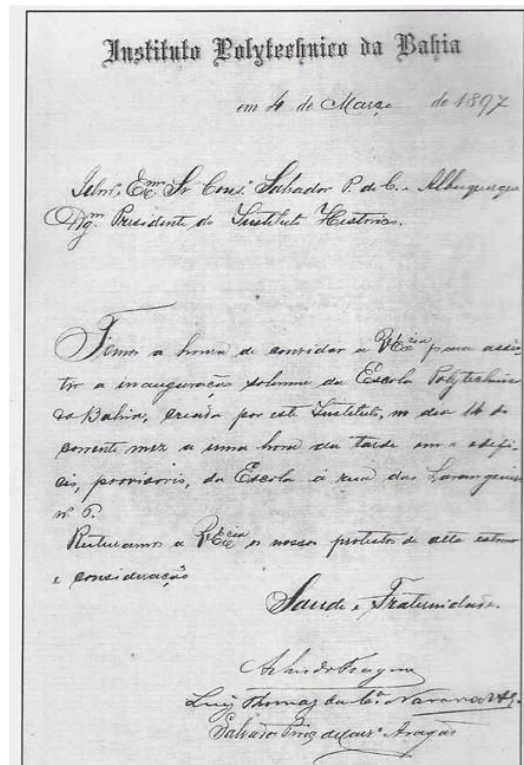 Instituto Polytechnico da Bahia
em 4 de Março de 1897
Illmo. Exmo. Sr. Cons. Salvador P. de C. e Albuquerque
Dgm. Presidente do Instituto Historico.
Temos a honra de convidar a V. Excia para assis-
tir a inauguração solemne da Escola Polytechnica
da Bahia, creada por este Instituto, no dia 14 do
corrente mez a uma hora da tarde em o edifi-
cio, provisorio, da Escola á rua das Larangeiras
nº 6.
a V. Excia os nossos protestos de alta estima
e consideração
Saude e Fraternidade.
Arlindo Fragoso
Luiz Thomaz da Cª. Navarro
Salvador Pires de Aragão